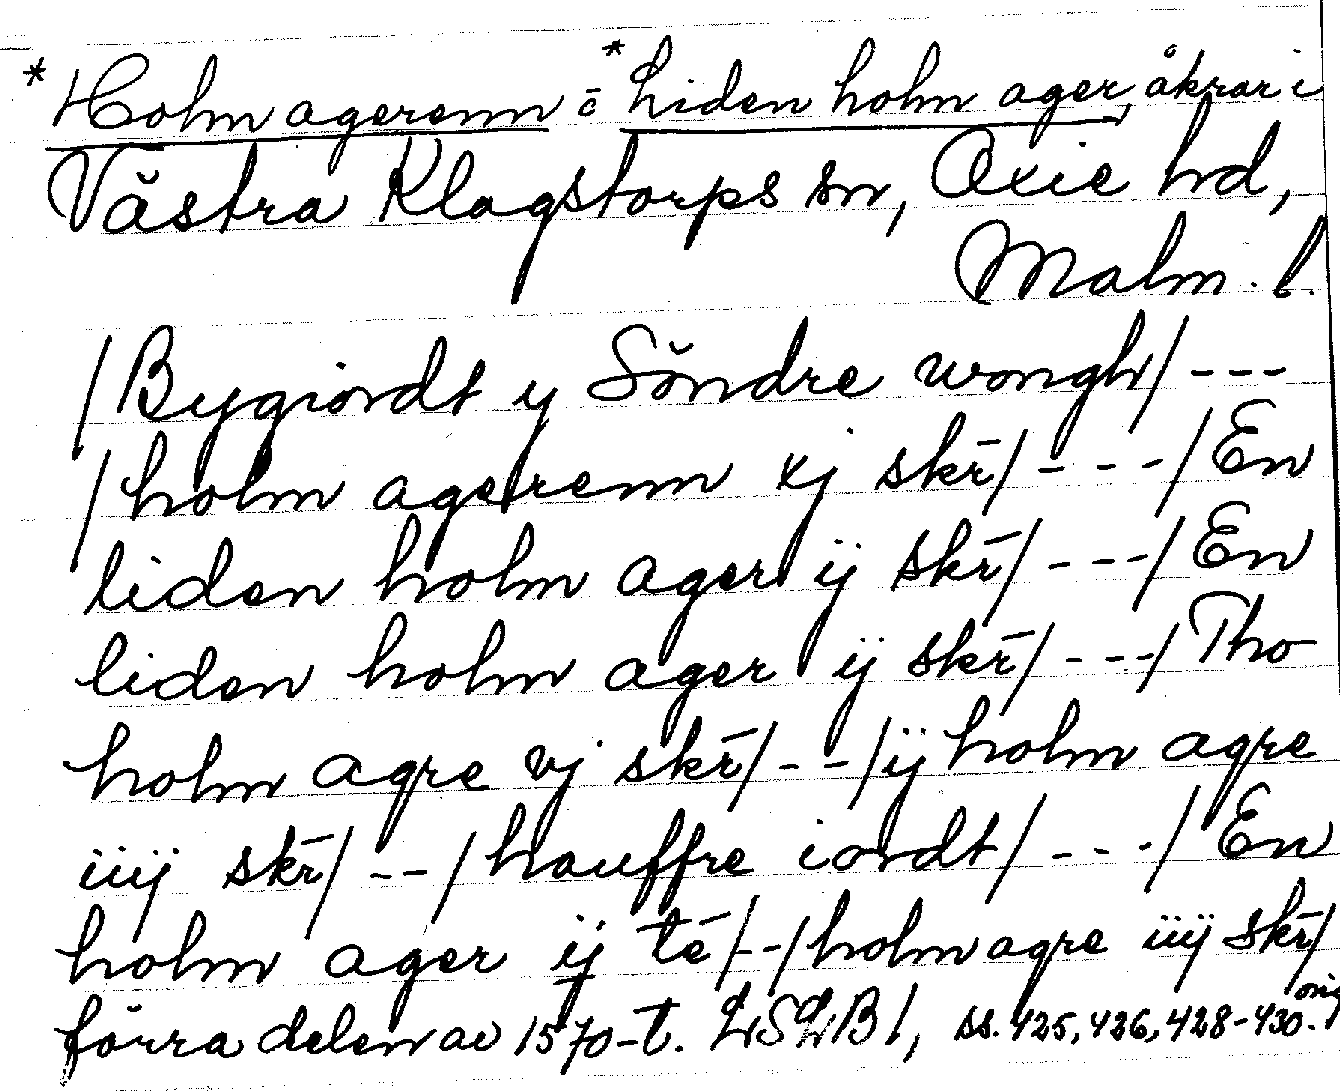 *Holm agerenn o *Liden holm ager, åkrar i
Västra Klagstorps sn, Oxie hd,
Malm. l.
/Bygiordt y Söndre wongh/ ---
/holm agerenn xj skr̄/ ---- /En
liden holm ager ij skr̄/ --- /En
liden holm ager ij skr̄/ --- /Tho
holm agre vj skr̄/ -- /ij holm agre
iiij skr̄/ -- /houffre iordt/ --- /En
holm ager ij te̅ /--/holm agre iiij skr̄/
förra delen av 1570-t. LSLB 1, ss. 425, 426, 428-430. orig